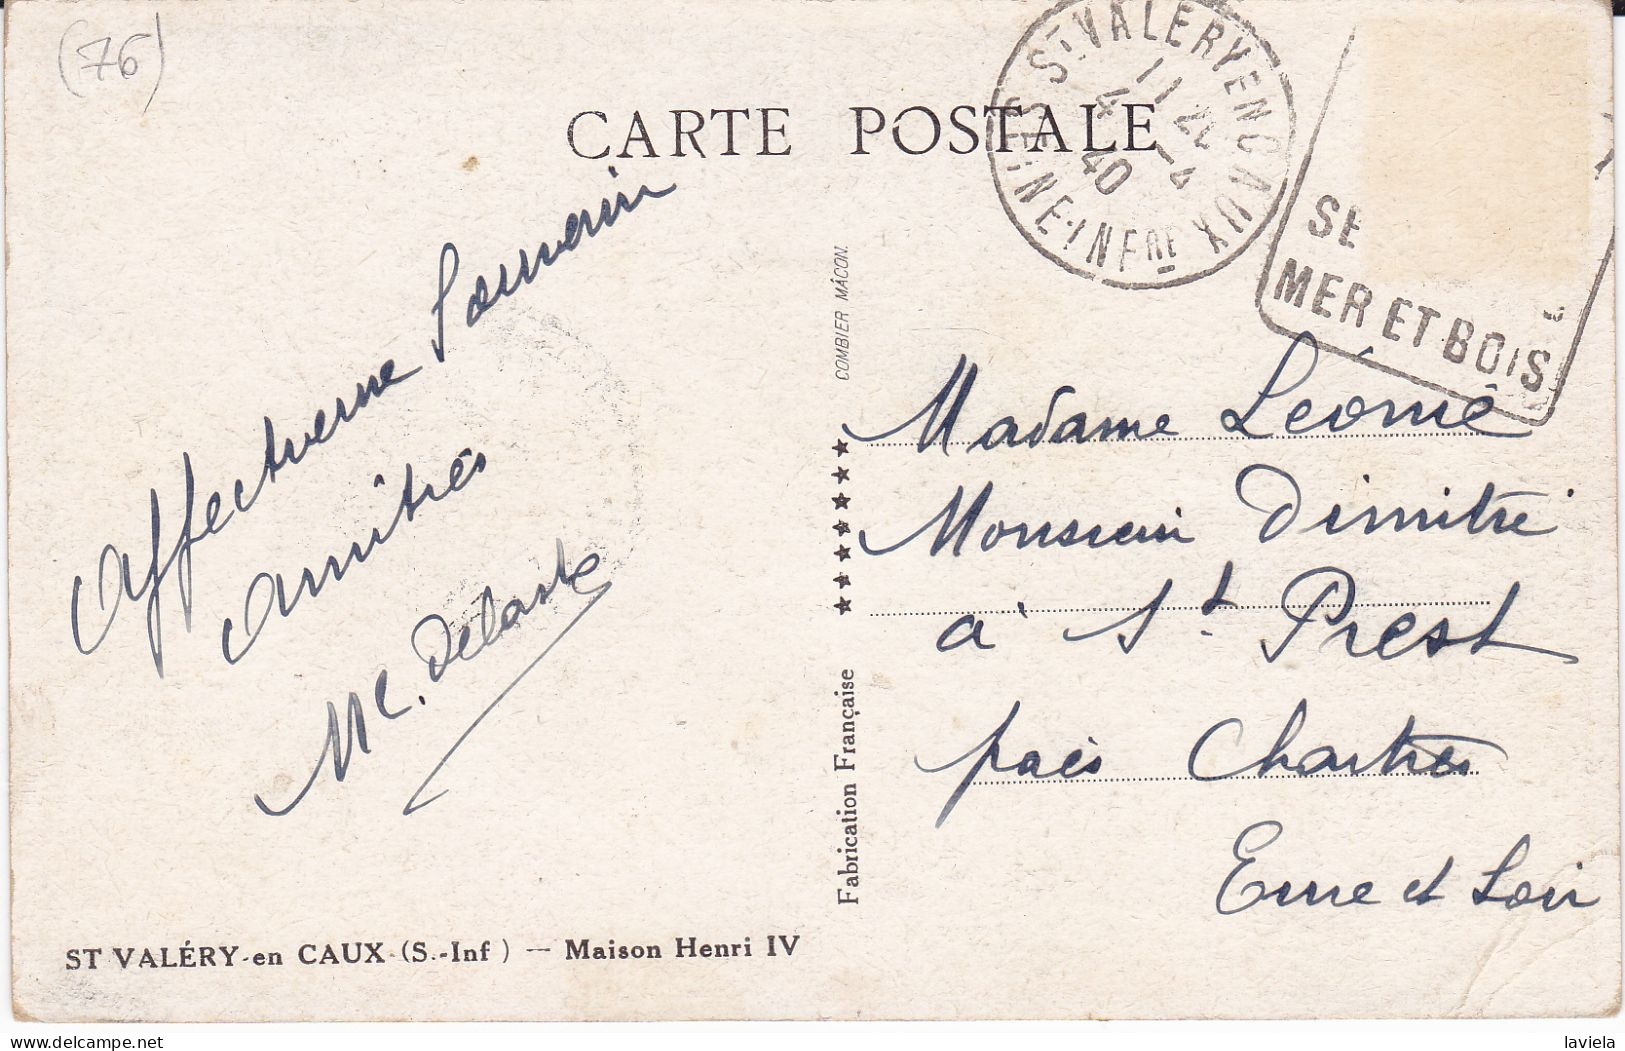 (76)
CARTE POSTALE
ST VALERY EN CAUX
11 24
4 -4
40
SEINE-INFRE
SE
MER ET BOIS
Affectueux Souvenir
Amitiés
M C. Delaste
COMBIER MÂCON
Fabrication Française
Madame Léonie
Monsieur Dimitri
à St Prest
près Chartres
Eure et Loir
ST VALÉRY-en CAUX (S.-Inf) — Maison Henri IV
laviela